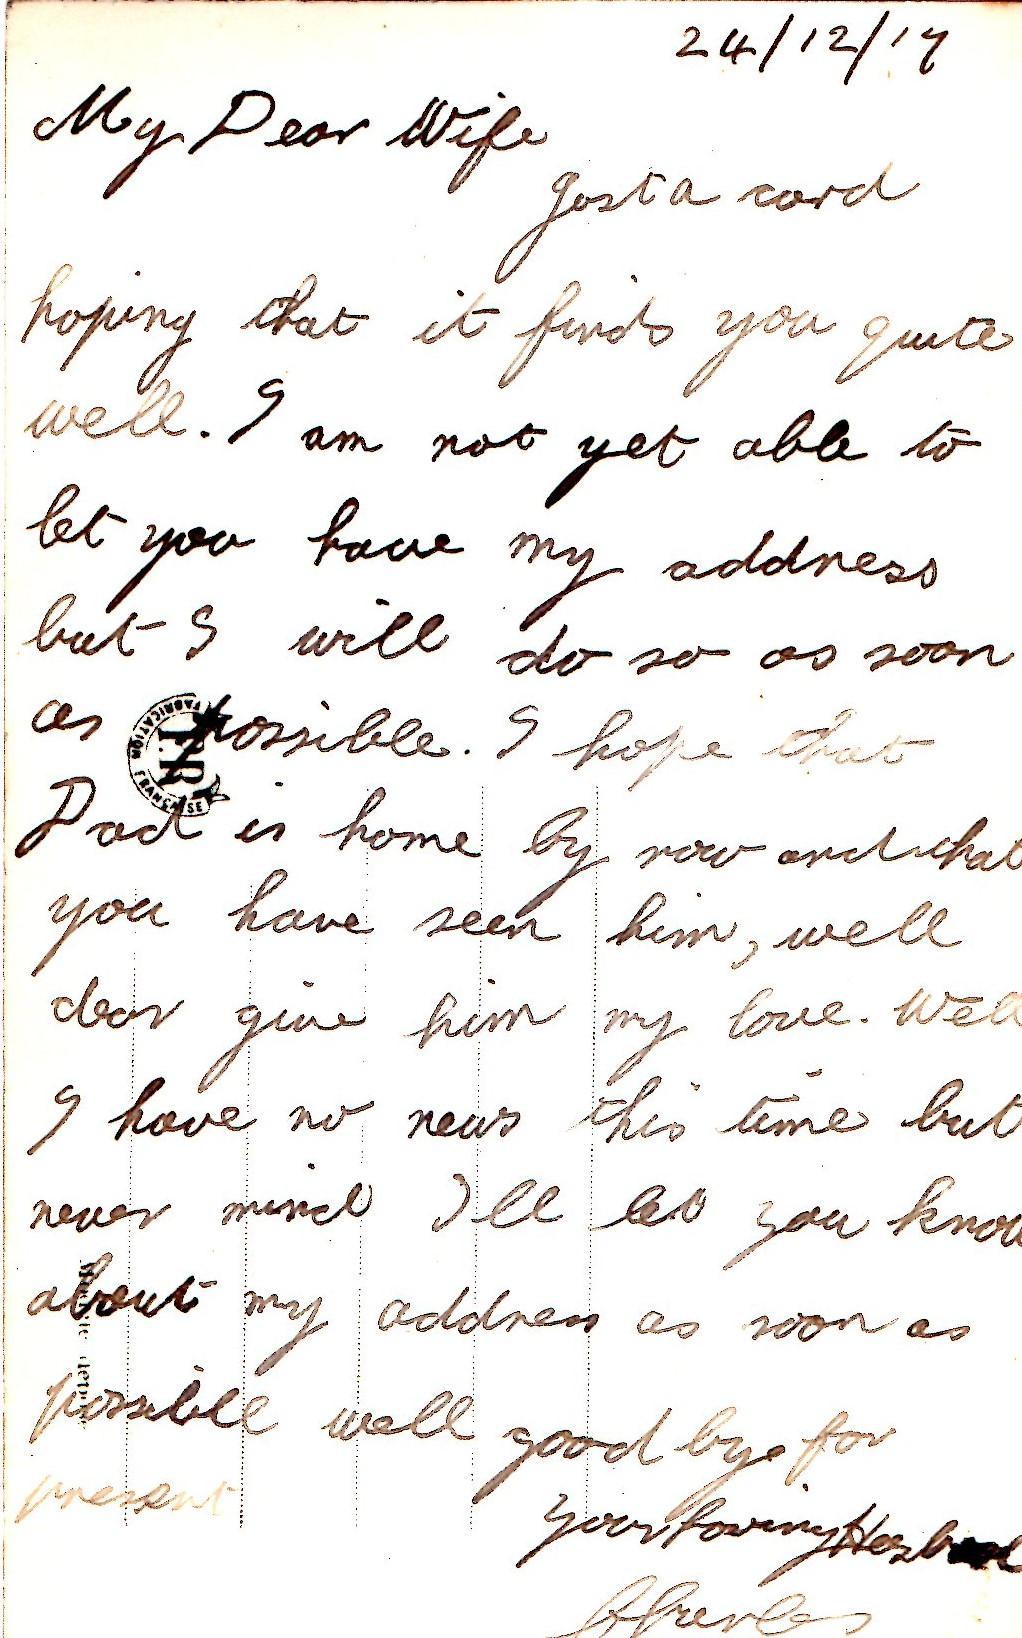 24/12/17
My Dear Wife
Just a card
hoping that it finds you quite
well. I am not yet able to
let you have my address
but I will do so as soon
as possible. I hope that
FABRICATION FRANÇAISE
Dad is home by now and that
you have seen him, well
dear give him my love. Well
I have no news this time but
never mind I'll let you know
about my address as soon as
possible well good bye for
present
Your loving Husband
Charles